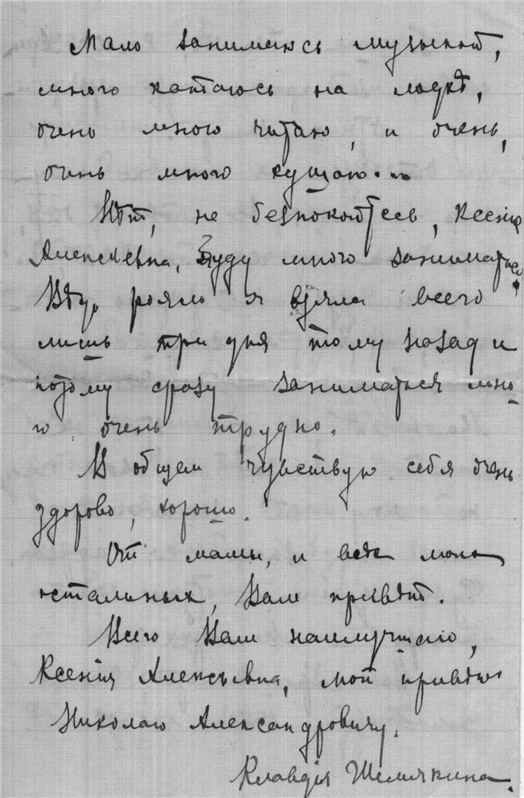 Мало занимаюсь музыкой,
много катаюсь на лодкѣ,
очень много читаю, и очень,
очень много кушаю...
Нѣт, не безпокойтесь, Ксенія
Алексѣевна, буду много заниматься.
Вѣдь рояль я взяла всего
лишь три дня тому назад и
потому сразу заниматься мно-
го очень трудно.
В общем чувствую себя очень
здорово, хорошо.
От мамы, и всѣх моих
остальных, Вам привѣт.
Всего Вам наилучшаго,
Ксенія Алексѣевна, мой привѣт
Николаю Александровичу.
Клавдія Шемякина.